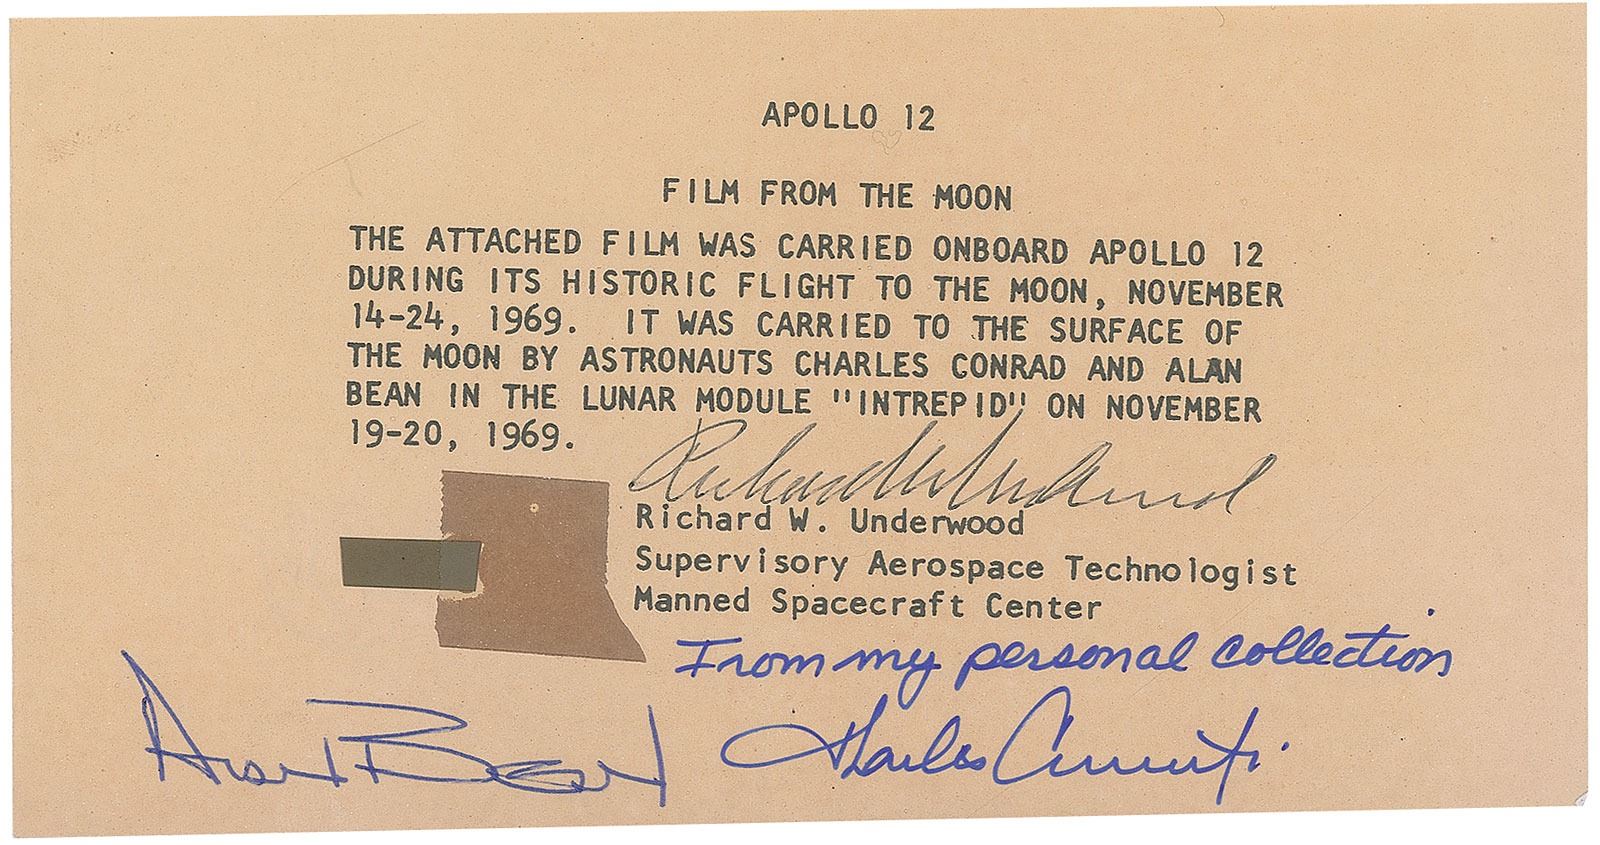 APOLLO 12
FILM FROM THE MOON
THE ATTACHED FILM WAS CARRIED ONBOARD APOLLO 12
DURING ITS HISTORIC FLIGHT TO THE MOON, NOVEMBER
14-24, 1969. IT WAS CARRIED TO THE SURFACE OF
THE MOON BY ASTRONAUTS CHARLES CONRAD AND ALAN
BEAN IN THE LUNAR MODULE "INTREPID" ON NOVEMBER
19-20, 1969.
Richard W. Underwood
Richard W. Underwood
Supervisory Aerospace Technologist
Manned Spacecraft Center
From my personal collection
Alan Bean
Charles